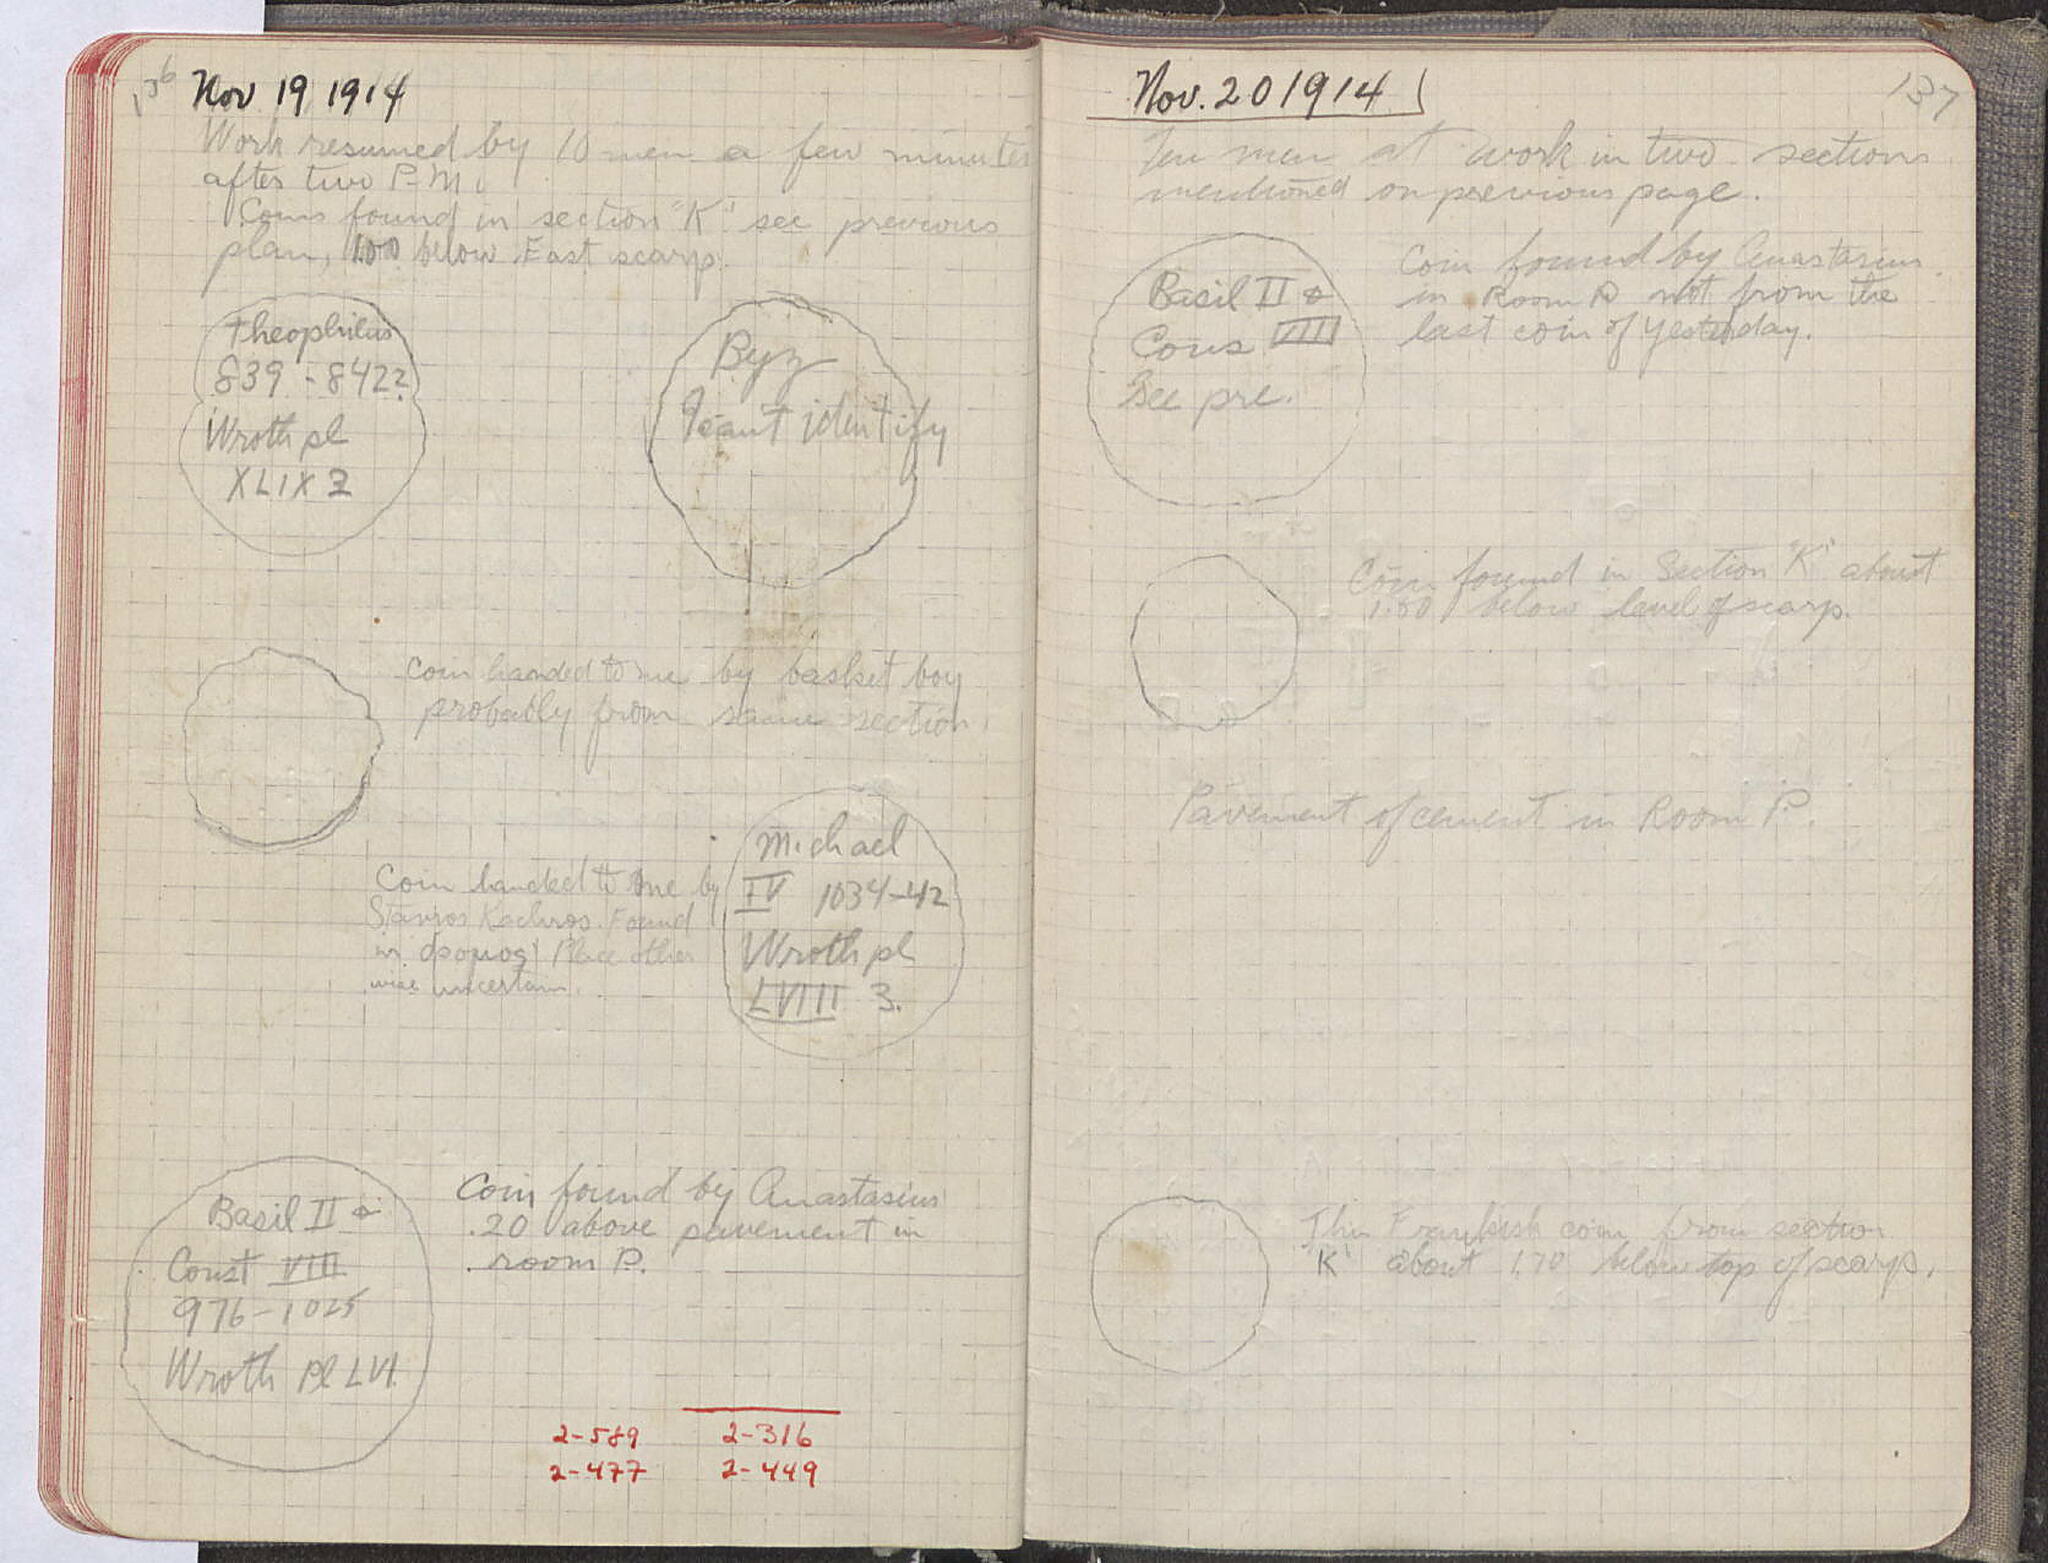 136
Nov 19 1914
Work resumed by 10 men a few minutes
after two P.M.
Coins found in section "K" see previous
plan, 1.00 below East scarp.
Theophilus
839 - 842?
Wroth pl
XLIX
Byz
I can't identify
Coin handed to me by basket boy
probably from same section.
Coin handed to me by
Stavros Found
in δρόμος Place other
wise uncertain.
Michael
IV 1034-42
Wroth pl
LVIII 3.
Basil II &
Const VIII
976-1025
Wroth Pl LVI.
Coin found by Anastasius
.20 above pavement in
room P.
2-589 2-316
2-477 2-449
137
Nov. 20 1914
Ten men at work in two sections
mentioned on previous page.
Basil II &
Cons VIII
See pre.
Coin found by Anastasius
in Room not from the
last coin of yesterday.
Coin found in Section "K" about
1.50 below level of scarp.
Pavement of cement in Room P.
Frankish coin from section
K about 1.70 below top of scarp.